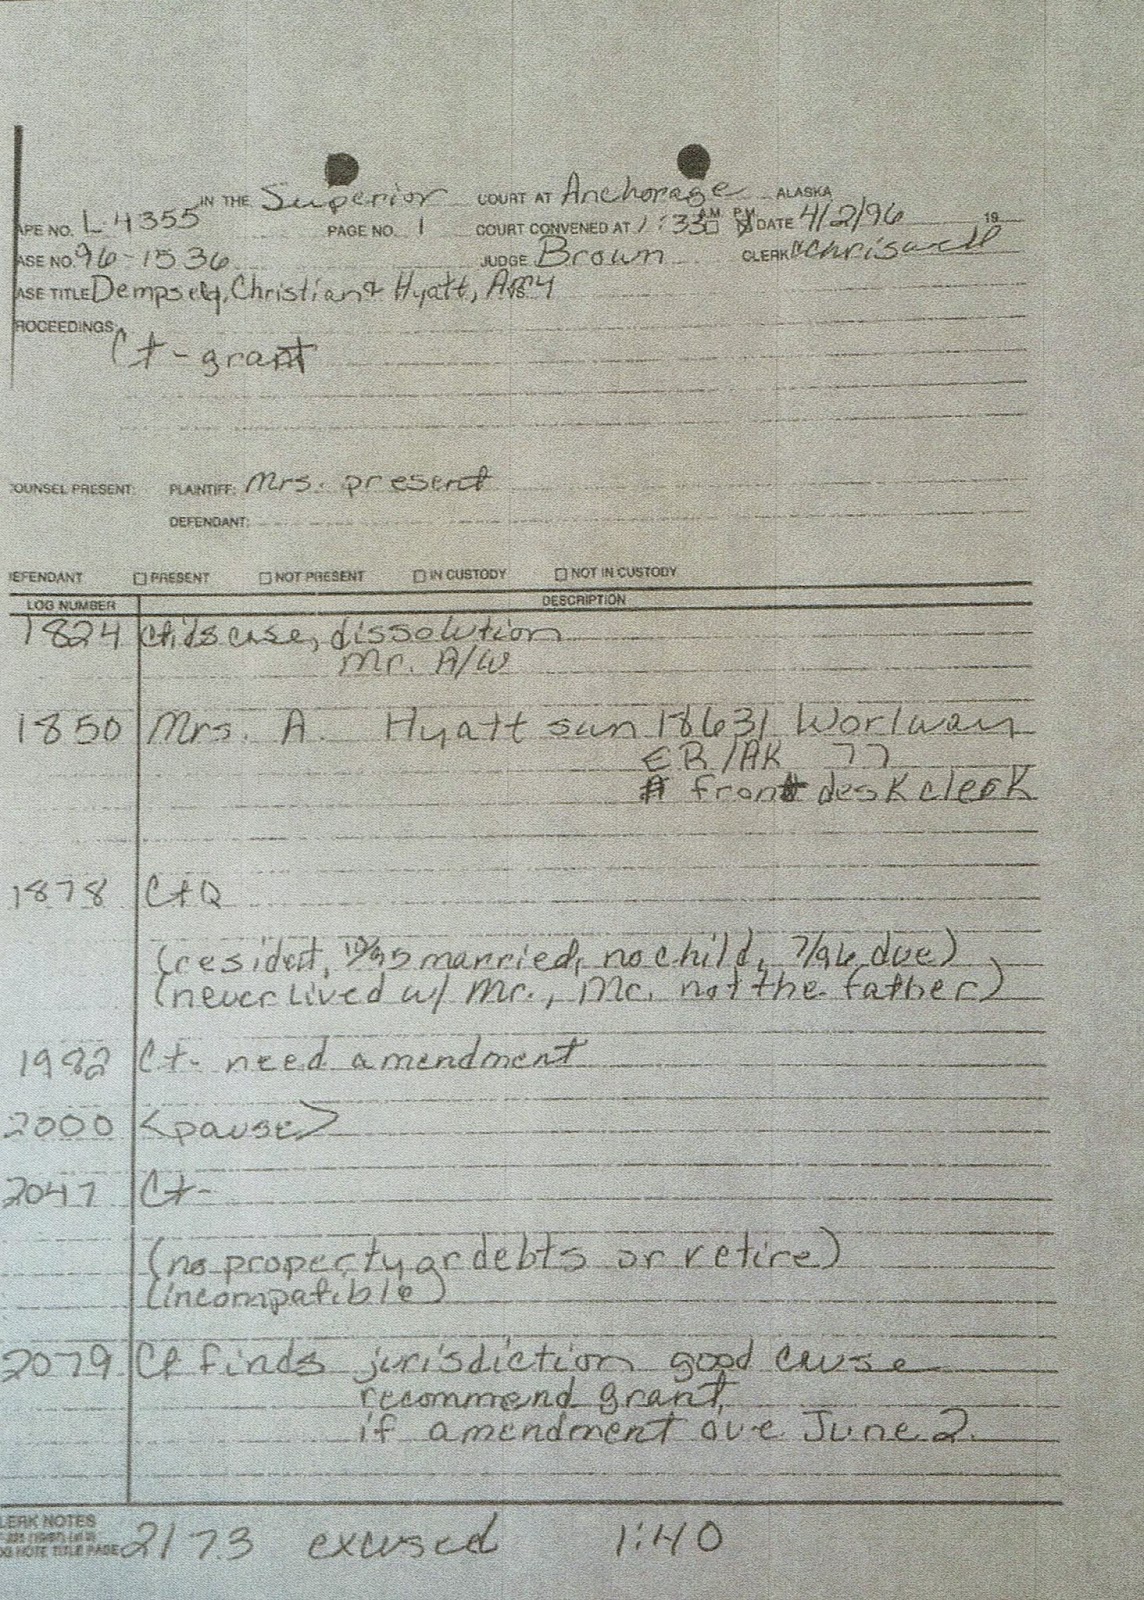 IN THE Superior COURT AT Anchorage ALASKA
APE NO. L-4355 PAGE NO. 1 COURT CONVENED AT 1:33 AM PM DATE 4/2/96 19
ASE NO. 96-1536 JUDGE Brown CLERK
ASE TITLE Dempsey, Christian & Hyatt, Amy
ROCEEDINGS
Ct - grant
OUNSEL PRESENT: PLAINTIFF: Mrs. present
DEFENDANT:
EFENDANT PRESENT NOT PRESENT IN CUSTODY NOT IN CUSTODY
LOG NUMBER DESCRIPTION
1824 ct. ids case, dissolution
Mr. A/W
1850 Mrs. A. Hyatt swn 18631
ER/AK 77
front desk clerk
1878 Ct Q
(resident, 10/95 married, no child, 7/96 due)
(never lived w/ Mr., Mr. not the father)
1982 Ct - need amendment
2000 <pause>
2047 Ct -
(no property or debts or retire)
(incompatible)
2079 Ct finds jurisdiction good cause
recommend grant,
if amendment due June 2.
LERK NOTES
NOTE TITLE PAGE 2173 excused 1:40